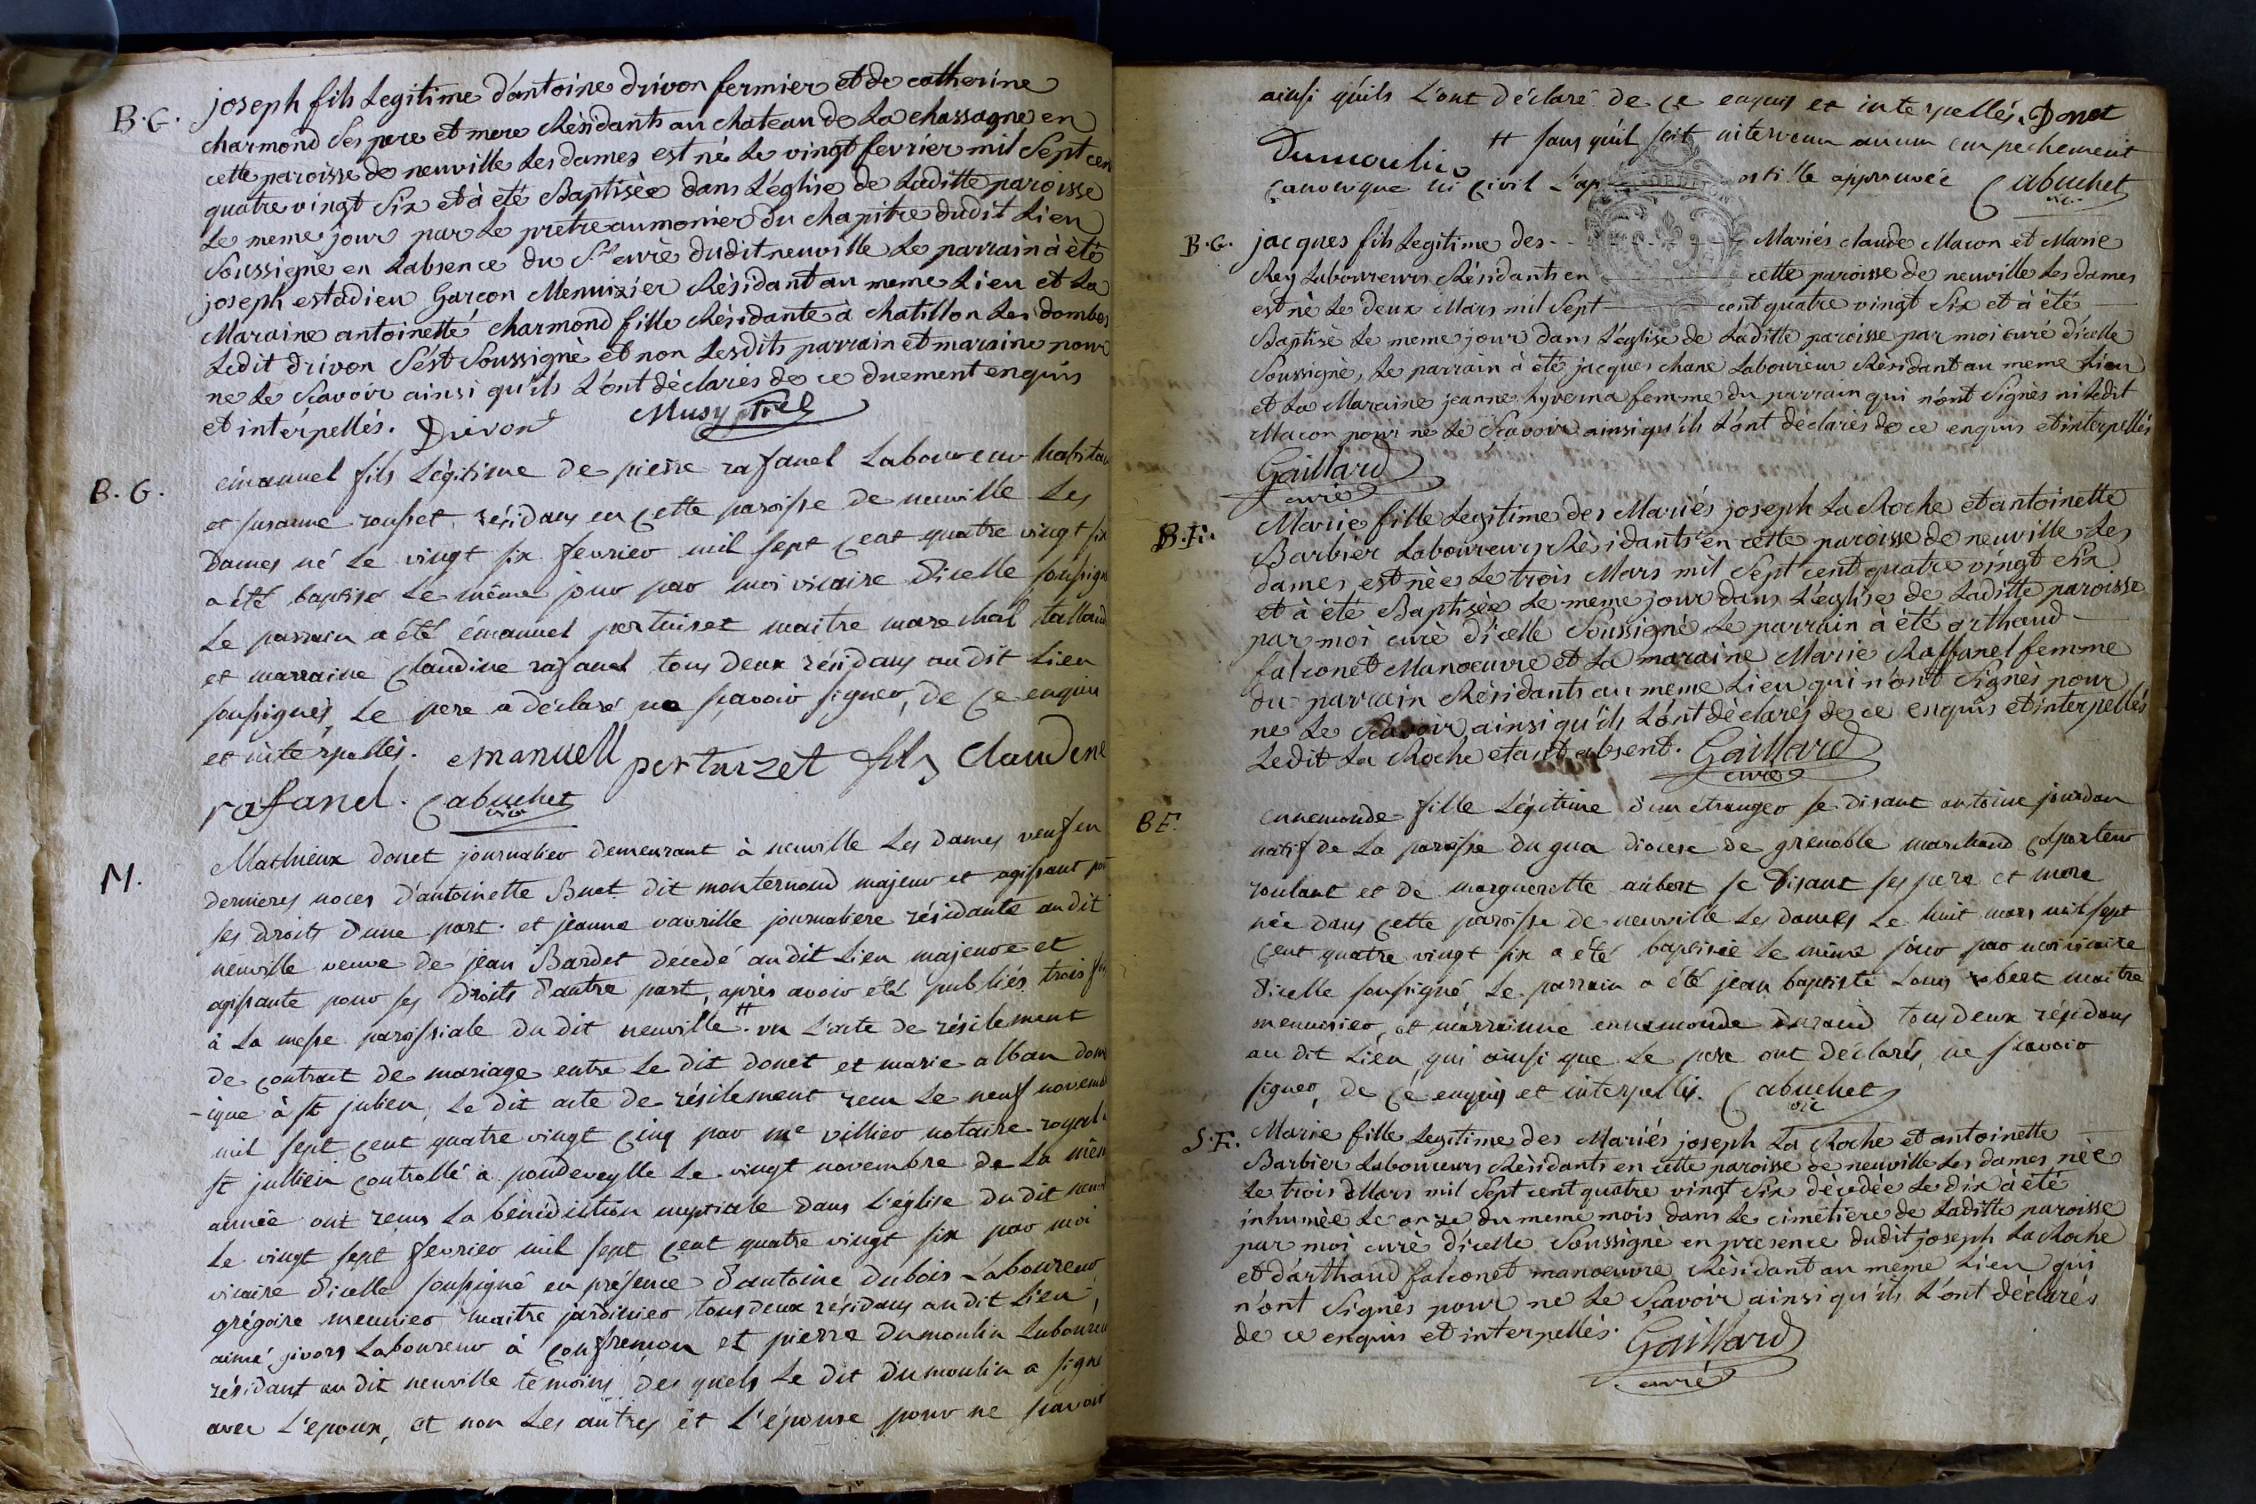 B.G. joseph fils Legitime d'antoine drivon fermier et de catherine
charmond ses pere et mere Résidants au chateau de La chassagne en
cette paroisse de neuville Les dames est né Le vingt fevrier mil Sept cen
quatre vingt Six et à été Baptisèe dans L'eglise de Laditte paroisse
Le meme jour par Le prètre aumonier du chapitre dudit Lieu
Soussigné en Labsence du Sr curé dudit neuville Le parrain à été
joseph estadieu Garçon Menuizier Résidant au meme Lieu et La
Maraine antoinette charmond fille Résidante à chatillon Les dombes
Ledit drivon S'est Soussigné et non Lesdits parrain et maraine pour
ne Le Scavoir ainsi qu'ils L'ont dèclariés de ce duement enquis
et intérpellés. Drivon Musy ptre
B.G. émanuel fils Légitime de pierre rafanel Laboureur habitan
et susanne rousset résidans en cette paroisse de neuville Les
Dames né Le vingt six fevrier mil sept cent quatre vingt six
a été baptisé Le même jour par moi vicaire d'icelle soussigné
Le parrain a été émanuel pertuiset maitre marechal
et marraine Claudine rafanel tous deux résidans au dit Lieu
soussignés, Le pere a déclaré ne sçavoir signer, de ce enquis
et interpellés. emanuell perturzet fils Claudine
rafanel. Cabuchet vic.
M. Mathieux donet journalier demeurant à neuville Les Dames veuf en
dernieres noces d'antoinette Buet dit monternoud majeur et agissant pour
ses droits d'une part. et jeanne vavrille journaliere résidante au dit
neuville veuve de jean Bardet decedé au dit Lieu majeure et
agissante pour ses droits d'autre part, après avoir été publiés trois fois
à La messe paroissiale du dit neuville ⧺. vu L'acte de résilement
de contract de mariage entre Le dit donet et marie alban dome
-ique à st julien, Le dit acte de résilement reçu Le neuf novemb
mil sept cent quatre vingt cinq par me villier notaire royal à
st jullien controllé a pondeveylle Le vingt novembre de La mêm
année ont reçus La bénédiction nuptiale dans L'église du dit neuv
Le vingt sept fevrier mil sept cent quatre vingt six par moi
vicaire d'icelle soussigné en présence d'antoine dubois Laboureur
grégoire meunier maitre jardinier tous deux résidans au dit Lieu,
aimé givors Laboureur à confremon et pierre dumoulin Laboureu
résidant au dit neuville témoins des quels Le dit dumoulin a signé
avec L'epoux, et non Les autres et L'épouse pour ne sçavoir
ainsi qu'ils L'ont déclaré de ce enquis et interpellés. Donet
Dumoulin ⧺ sans qu'il soit intervenu aucun empechement
canonique ni civil L'ap ostille approuvée Cabuchet
vic.
B.G. jacques fils Legitime des Mariés claude Macon et Marie
Rey Laboureurs Résidants en cette paroisse de neuville Les dames
est né Le deux Mars mil Sept cent quatre vingt Six et à été
Baptisé Le meme jour dans L'église de Laditte paroisse par moi curé d'icelle
Soussigné, Le parrain à été jacques chane Laboureur Résidant au meme Lieu
et La Maraine jeanne hyverna femme du parrain qui n'ont Signès ni Ledit
Macon pour ne Le Scavoir ainsi qu'ils L'ont dèclariés de ce enquis et interpellés
Gaillard
curé
B.F. Marie fille Legitime des Mariés joseph La Roche et antoinette
Barbier Laboureurs Résidants en cette paroisse de neuville Les
dames est nèe Le trois Mars mil Sept cent quatre vingt Six
et à été Baptisèe Le meme jour dans L'eglise de Laditte paroisse
par moi curé d'icelle Soussigné Le parrain à été arthaud
falconet Manœuvre et La maraine Marie Raffanel femme
du parrain Résidants au meme Lieu qui n'ont Signès pour
ne Le Scavoir ainsi qu'ils L'ont dèclarés de ce enquis et interpellés
Ledit La Roche etant absent. Gaillard
curé
BF. ennemonde fille Légitime d'un étranger se disant antoine jourdan
natif de La paroisse du gua diocese de grenoble marchand colporteur
roulant et de marguerette aubert se disant ses pere et mere
née dans cette paroisse de neuville Les dames Le huit mars mil sept
cent quatre vingt six a été baptisée Le même jour par moi vicaire
d'icelle soussigné, Le parrain a été jean baptiste Louis robert maitre
menuisier, et marrainne ennemonde tous deux résidans
au dit Lieu qui ainsi que Le pere ont déclarés ne sçavoir
signer, de ce enquis et interpellés. Cabuchet
vic
S.F. Marie fille Legitime des Mariés joseph La Roche et antoinette
Barbier Laboureurs Résidants en cette paroisse de neuville Les dames nèe
Le trois Mars mil Sept cent quatre vingt Six dècedèe Le dix à été
inhumèe Le onze du meme mois dans Le cimetiere de Laditte paroisse
par moi curé d'icelle Soussigné en presence dudit joseph La Roche
et d'arthaud falconet manœuvre Résidant au meme Lieu qui
n'ont Signès pour ne Le Scavoir ainsi qu'ils L'ont dèclarés
de ce enquis et interpellés. Gaillard
curé